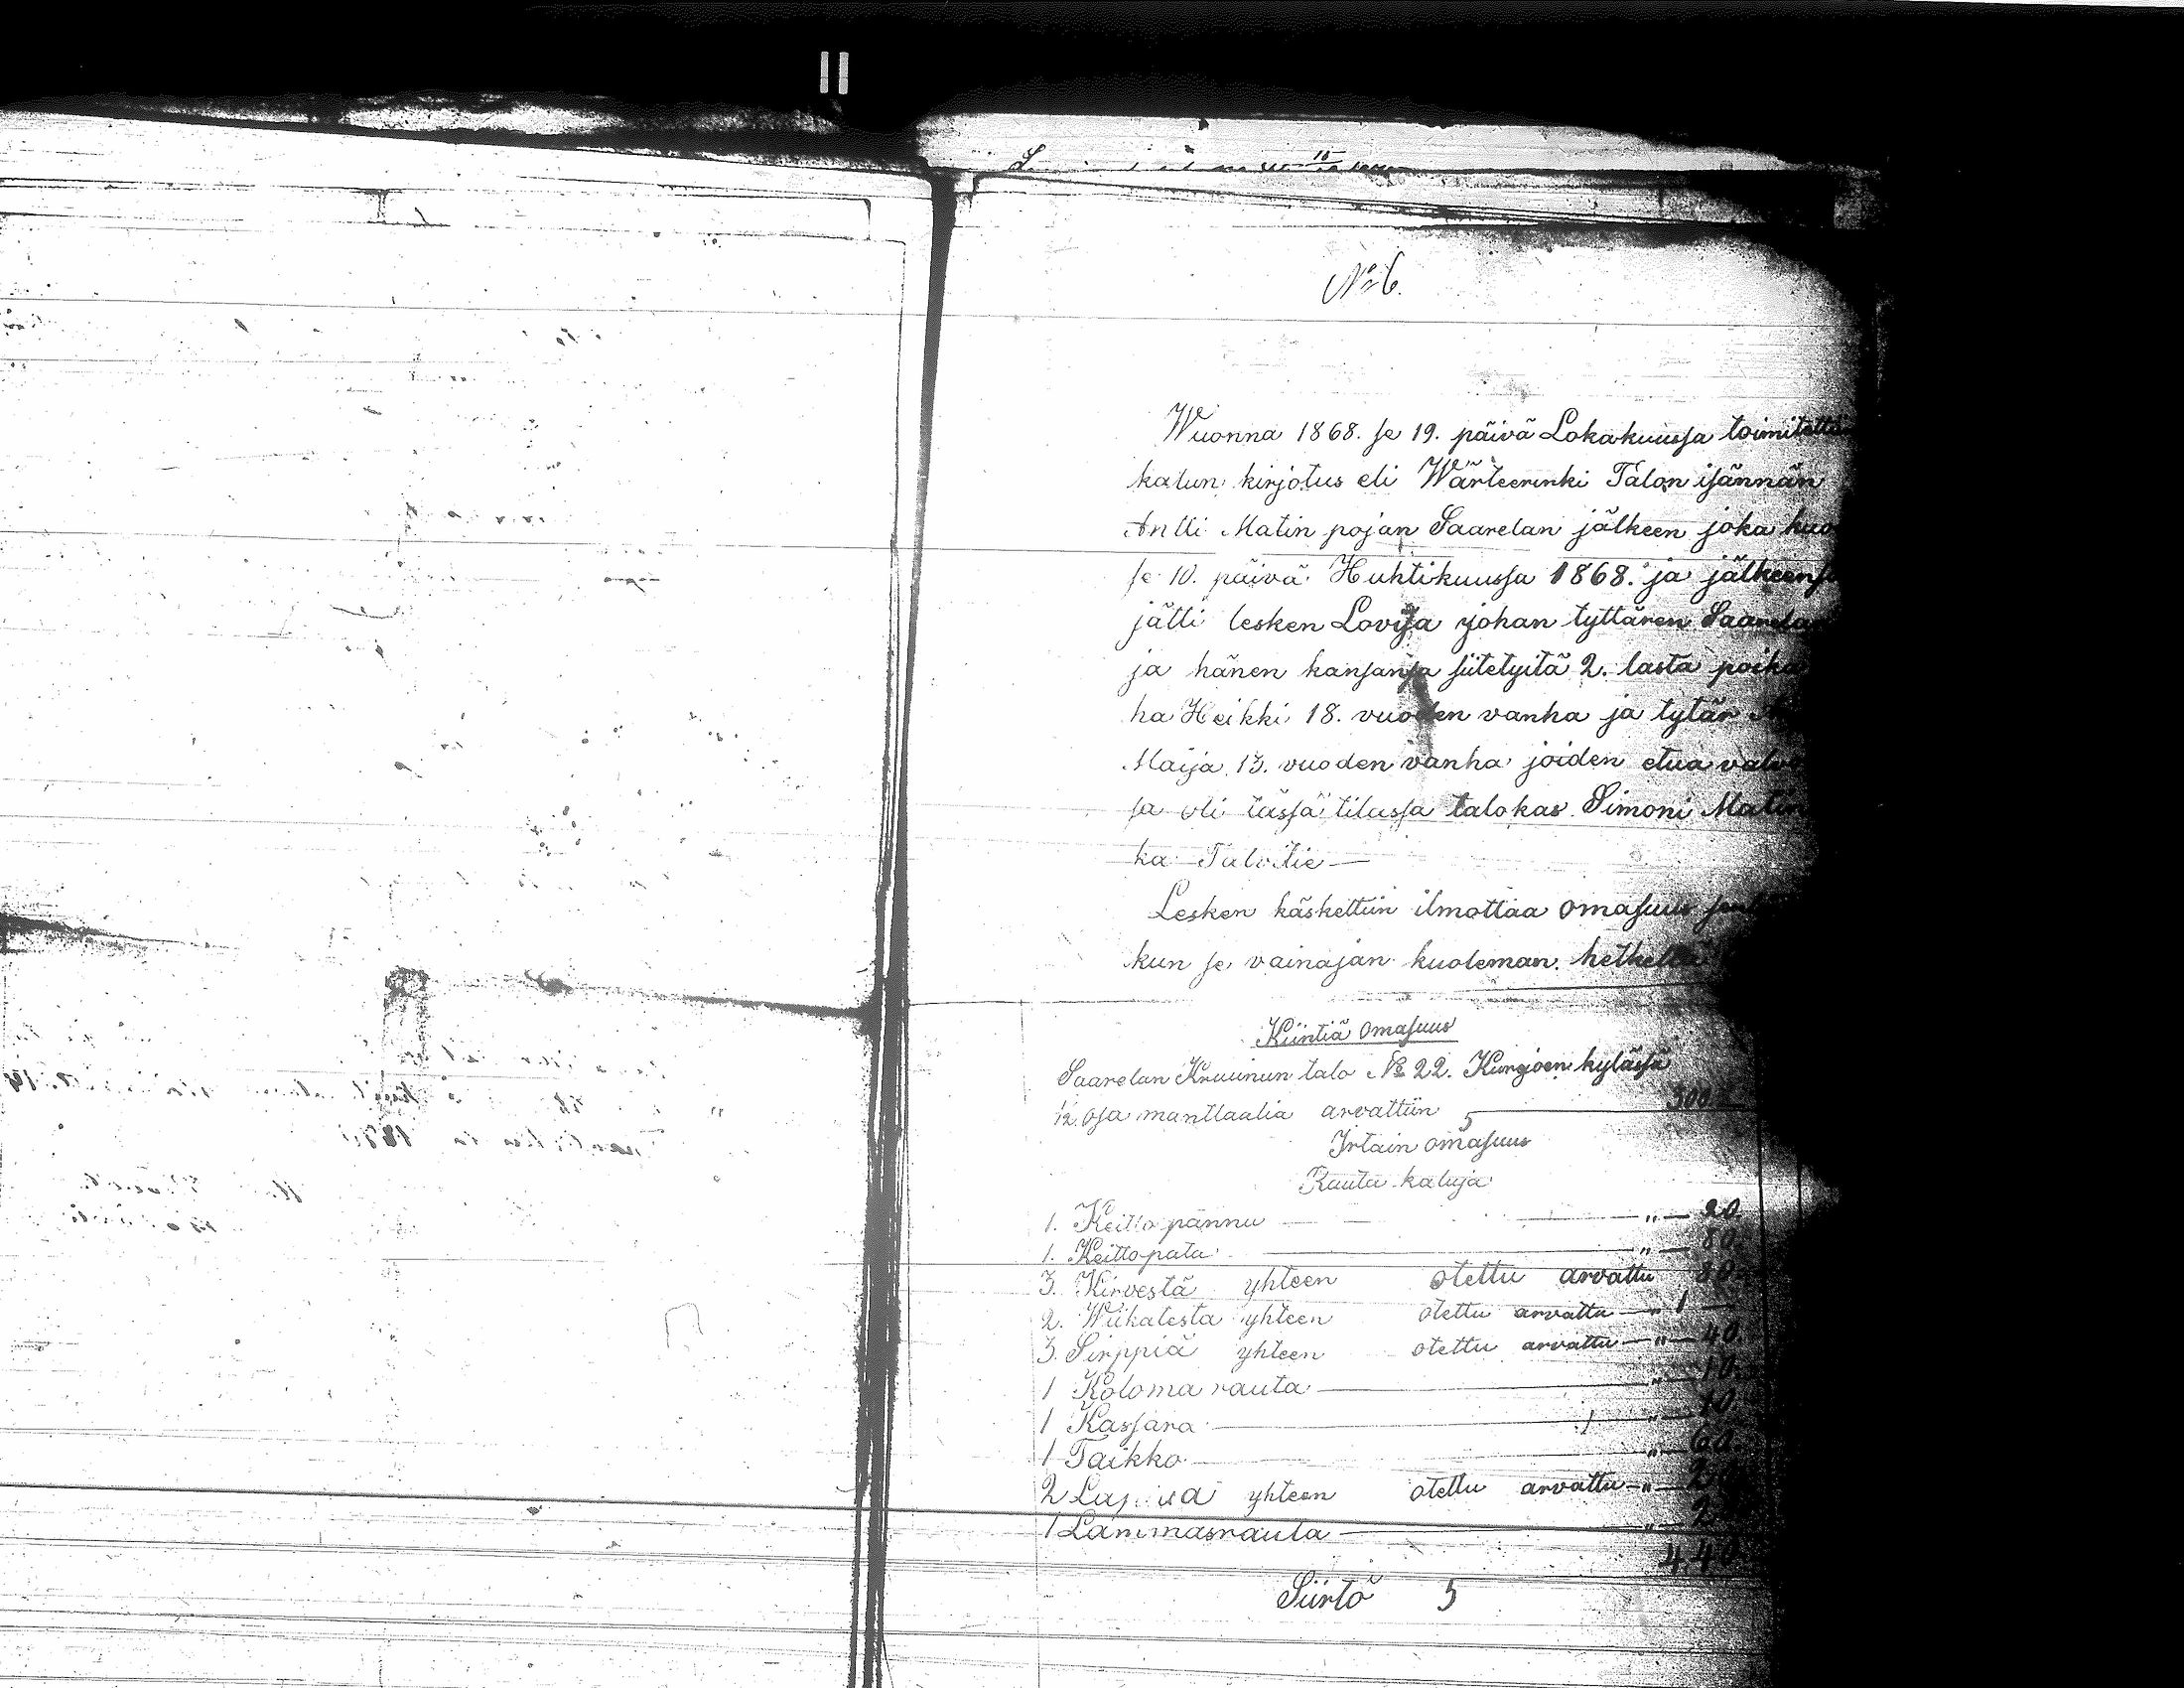 No 6.
Wuonna 1868. se 19. päivä Lokakuussa toimitettiin
kalun kirjotus eli Wärteerinki Talon isännän
Antti Matin pojan Saarelan jälkeen joka kuo
se 10. päivä Huhtikuussa 1868. ja jälkeensä
jätti lesken Lovisa johan tyttären Saarelan
ja hänen kansansa siitetyitä 2. lasta poika
ha Heikki 18. vuoden vanha ja tytär
Maija 13. vuoden vanha joiden etua valvo
sa oli tässä tilassa talokas Simoni Matin
ka Talvitie
Lesken käskettiin ilmottaa omasuus
kun se vainajan kuoleman hetkellä
Kiintiä omasuus
Saarelan Kruunun talo No 22. Kurjoen kylässä
1/12 osa manttaalia arvattiin 300
Irtain omasuus
Rauta kaluja
1. Keitto pannu „ 20.
1. Keittopata „ 80.
3. Kirvestä yhteen otettu arvattu 80.
2. Wiikatesta yhteen otettu arvattu „ 1
3. Sirppiä yhteen otettu arvattu „ 40.
1 Koloma rauta „ 10.
1 Kassara „ 10.
1 Taikko „ 60.
2 yhteen otettu arvattu „
1 Lammasrauta „
4 40.
Siirtö